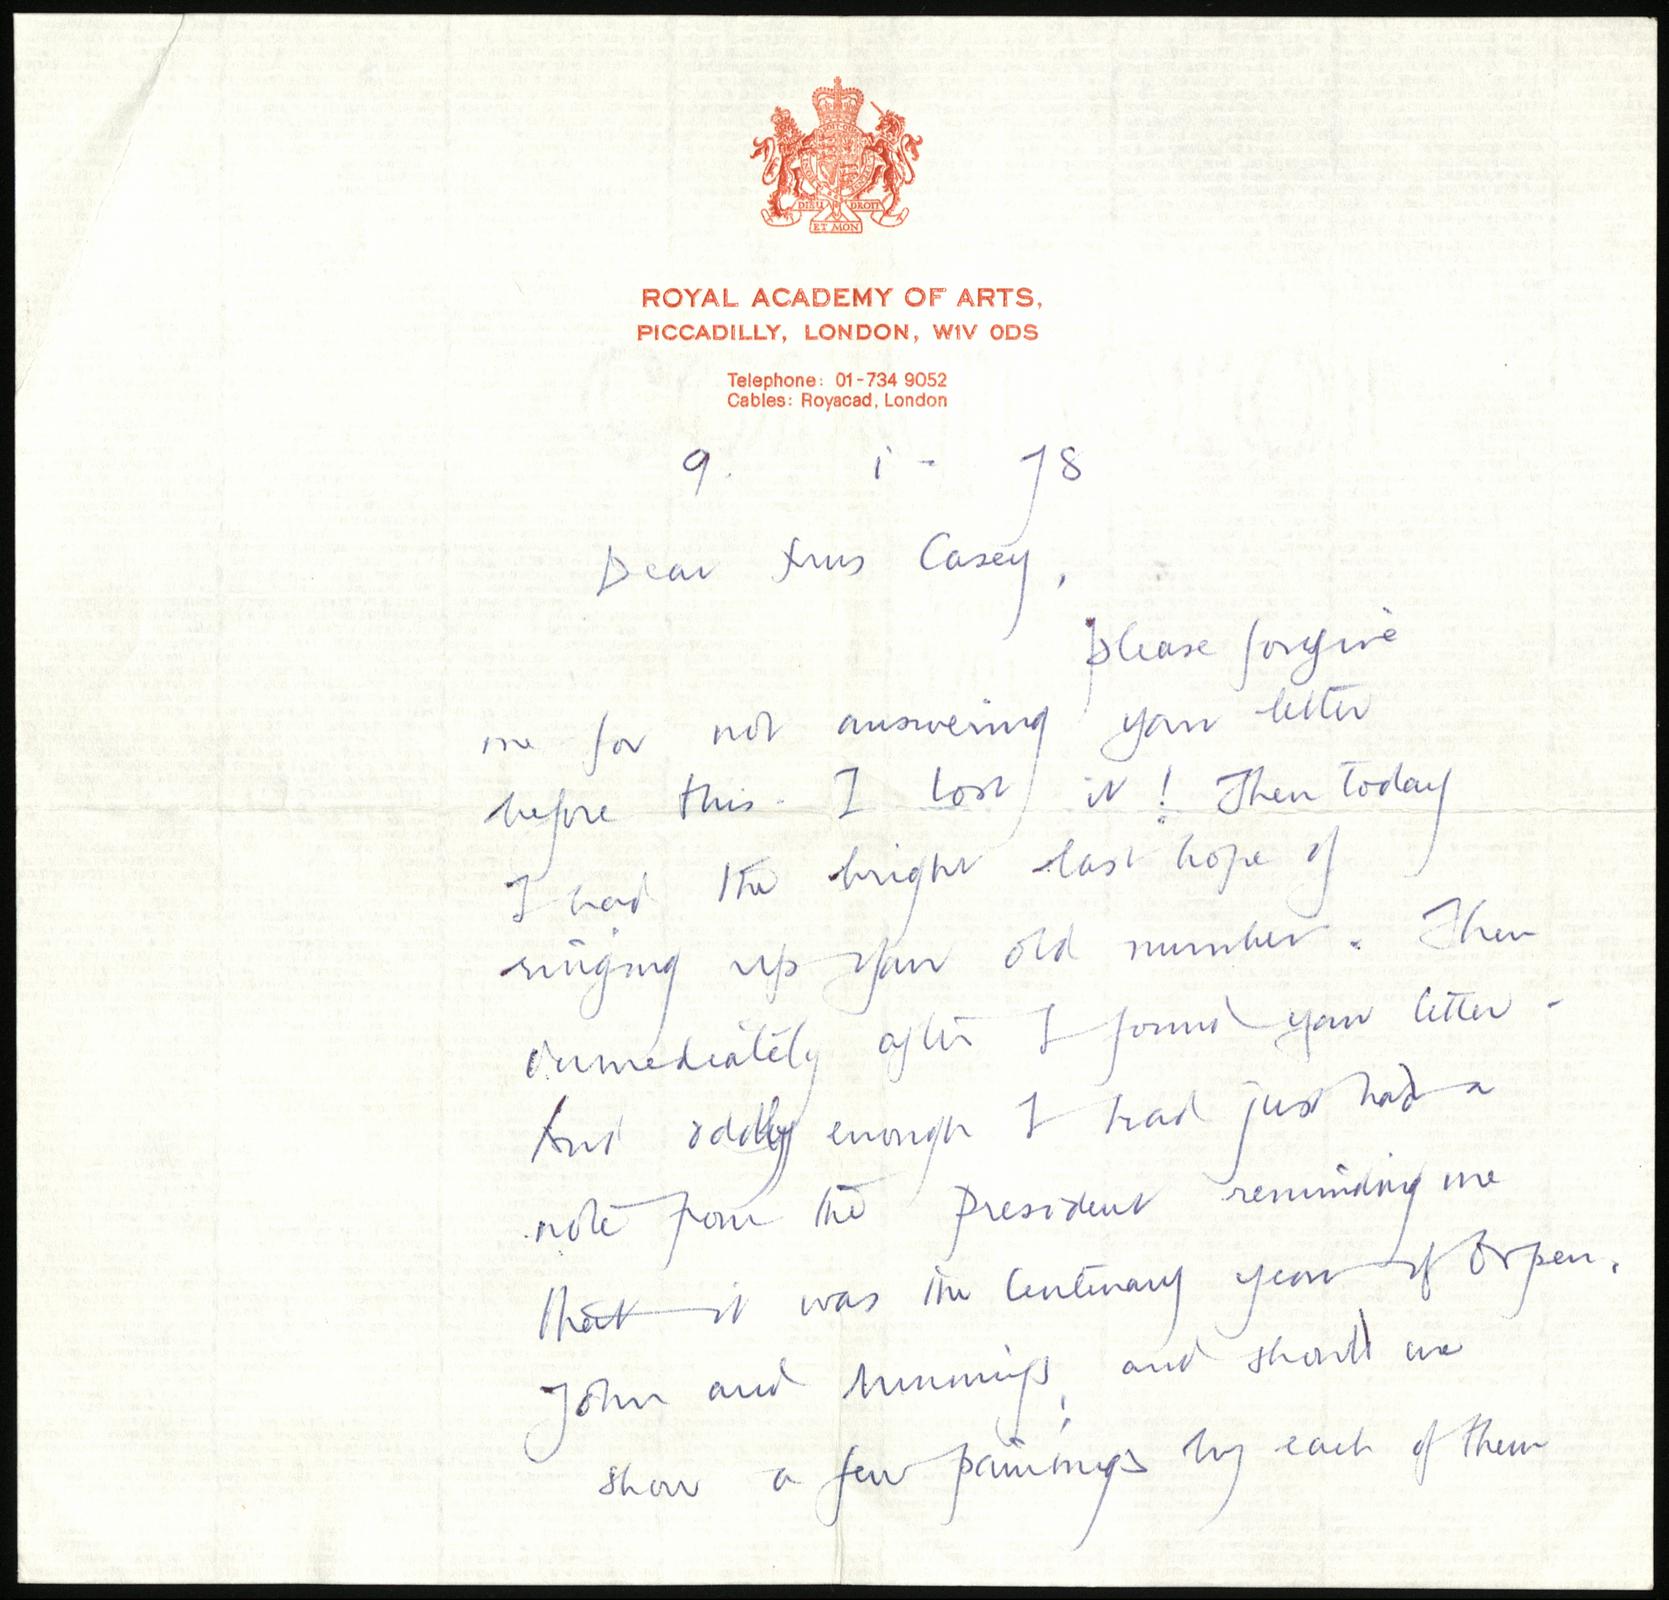 DIEU DROIT
ET MON
ROYAL ACADEMY OF ARTS,
PICCADILLY, LONDON, W1V 0DS
Telephone: 01-734 9052
Cables: Royacad, London
9. i - 78
Dear Casey,
please forgive
me for not answering your letter
before this. I lost it! Then today
I had the bright last hope of
ringing up your old number. Then
immediately after I found your letter -
And oddly enough I had just had a
note from the President reminding me
that it was the Centenary year of Orpen,
John and Munnings, and should we
show a few paintings by each of them